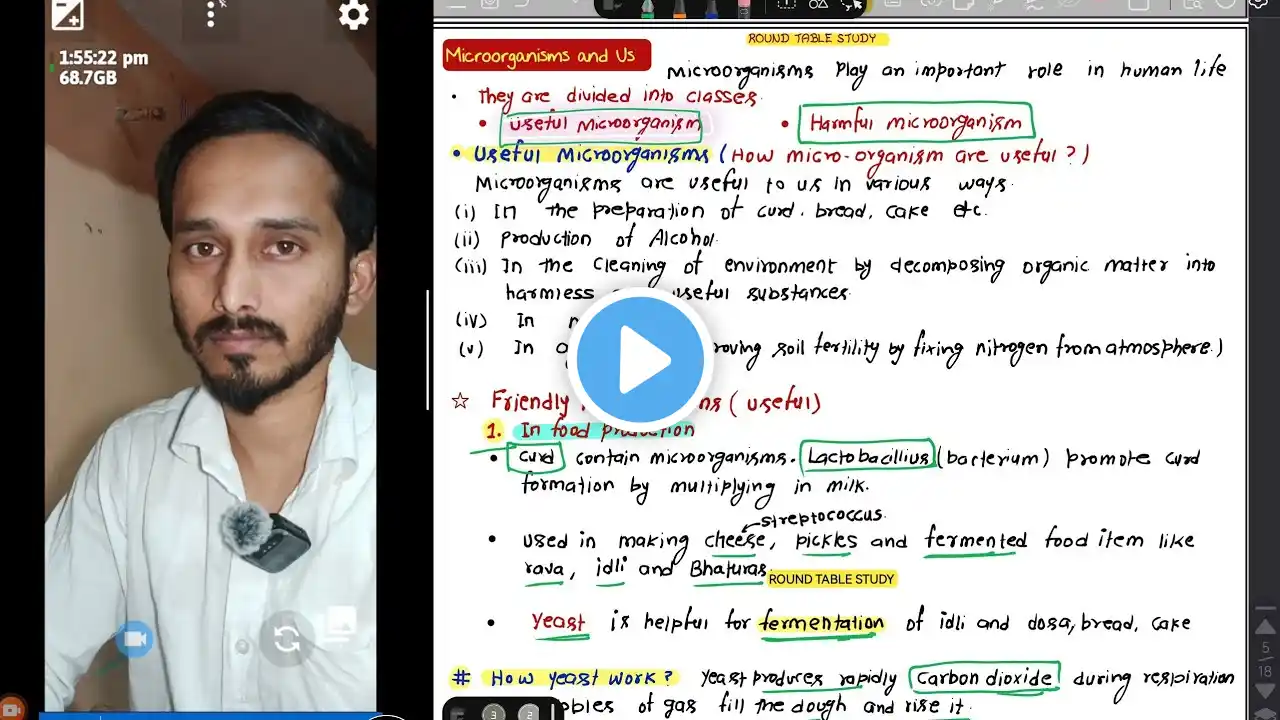 1:55:22 pm
68.7GB
ROUND TABLE STUDY
Microorganisms and Us
Microorganisms Play an important role in human life
• They are divided into classes.
• Useful Microorganism • Harmful microorganism
• Useful Microorganisms (How micro-organism are useful?)
Microorganisms are useful to us in various ways.
(i) In the preparation of curd, bread, cake etc.
(ii) Production of Alcohol.
(iii) In the Cleaning of environment by decomposing organic matter into
harmless useful substances.
(iv) In
(v) In soil fertility by fixing nitrogen from atmosphere.)
☆ Friendly (useful)
1. In food production
• Curd contain microorganisms. Lactobacillius (bacterium) promote curd
formation by multiplying in milk.
streptococcus.
• used in making cheese, pickles and fermented food item like
rava, idli and Bhaturas.
ROUND TABLE STUDY
• Yeast is helpful for fermentation of idli and dosa, bread, cake
# How yeast work? Yeast produces rapidly Carbon dioxide during respiration
of gas fill the dough and rise it.
5
18
3 2